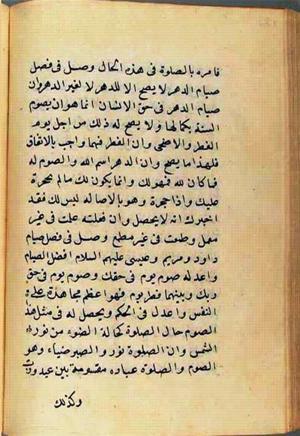 فامره بالصلوة فى هذه الحال وصل فى فصل
صيام الدهر لا يصح الا للدهر لا لغير الدهر فان
صيام الدهر فى حق الانسان انما هو ان يصوم
السنة بكمالها ولا يصح له ذلك من اجل يوم
الفطر والاضحى وان الفطر فيهما واجب بالاتفاق
فلهذا ما يصح وان الدهر اسم الله والصوم له
فما كان لله فهو لك وانما يكون لك ما لم تحجره
عليك واذا حجره وهو بالاصالة ليس لك فقد
اخبرك انه لا يحصل وان فعلته عملت فى غير
معمل وطمعت فى غير مطمع وصل فى فصل صيام
داود ومريم وعيسى عليهم السلام افضل الصيام
واعدله صوم يوم فى حقك وصوم يوم فى حق
ربك وبينهما فطر يوم فهو اعظم مجاهدة على
النفس واعدل فى الحكم ويحصل له فى مثل هذ
الصوم حال الصلوة كحالة الضوء من نور
الشمس وان الصلوة نور والصبر ضياء وهو
الصوم والصلوة عباده مقسومة بين عبد ورب
وكذلك